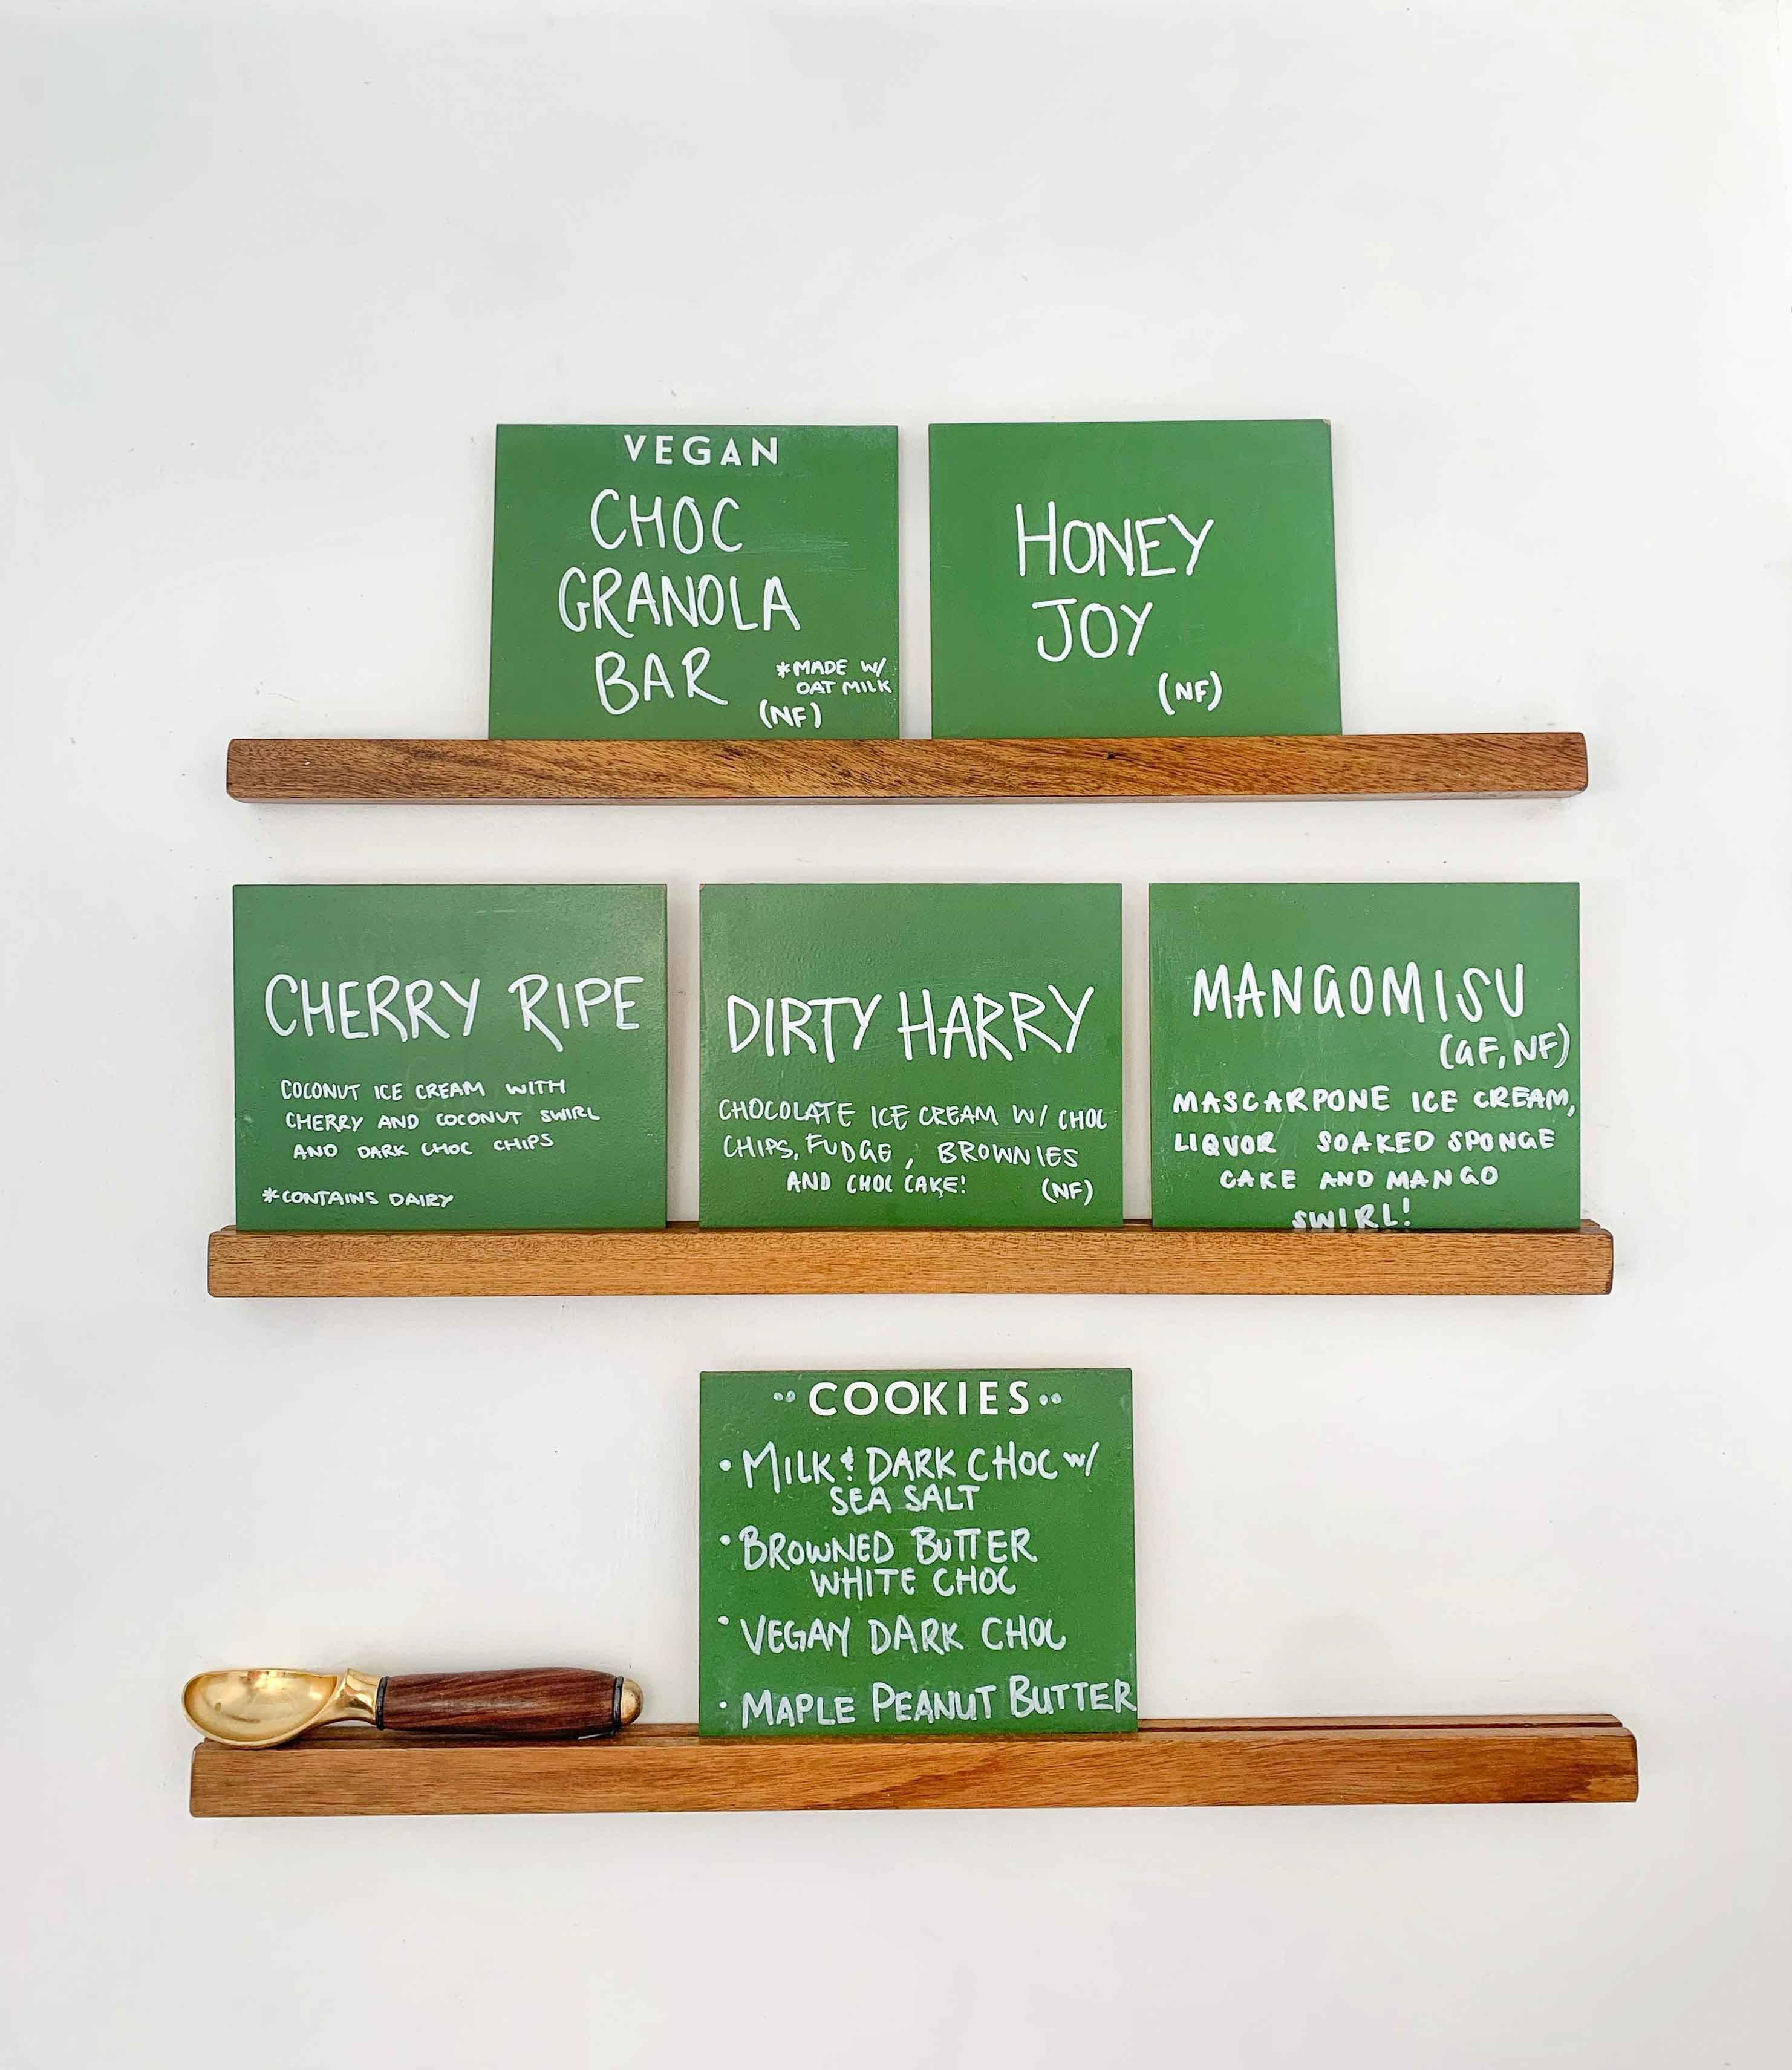 VEGAN
CHOC
GRANOLA
BAR
*MADE W/
OAT MILK
(NF)
HONEY
JOY
(NF)
CHERRY RIPE
COCONUT ICE CREAM WITH
CHERRY AND COCONUT SWIRL
AND DARK CHOC CHIPS
*CONTAINS DAIRY
DIRTY HARRY
CHOCOLATE ICE CREAM W/ CHOC
CHIPS, FUDGE, BROWNIES
AND CHOC CAKE! (NF)
MANGOMISU
(GF, NF)
MASCARPONE ICE CREAM,
LIQUOR SOAKED SPONGE
CAKE AND MANGO
SWIRL!
•• COOKIES ••
• MILK & DARK CHOC W/
SEA SALT
• BROWNED BUTTER
WHITE CHOC
• VEGAN DARK CHOC
• MAPLE PEANUT BUTTER